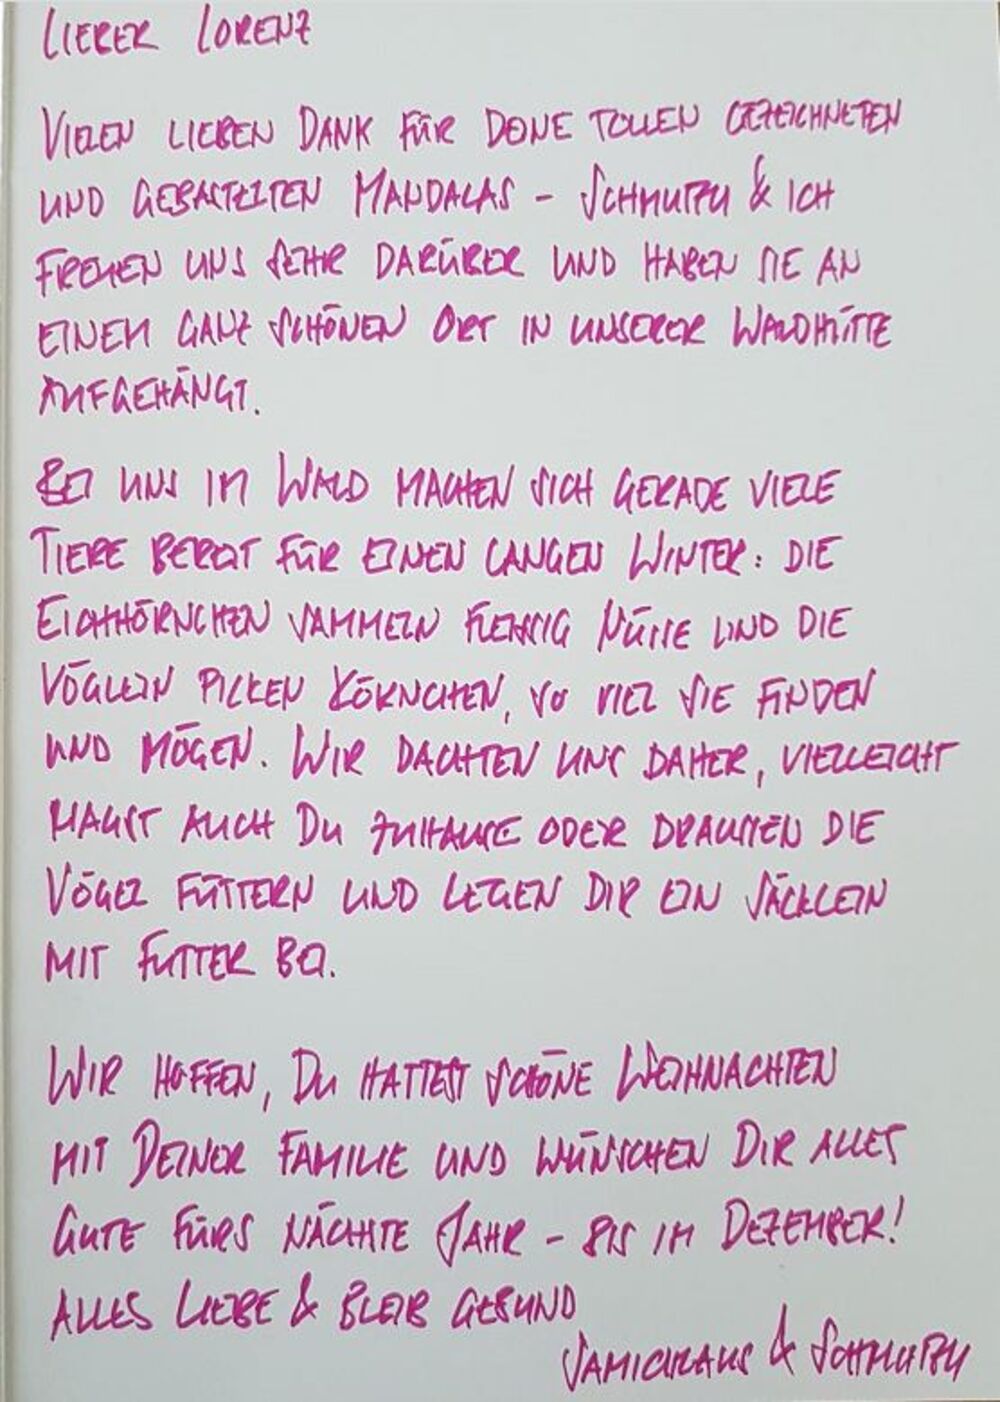 LIEBER LORENZ
VIELEN LIEBEN DANK FÜR DEINE TOLLEN GEZEICHNETEN
UND GEBASTELTEN MANDALAS - SCHMUTZLI & ICH
FREUEN UNS SEHR DARÜBER UND HABEN SIE AN
EINEM GANZ SCHÖNEN ORT IN UNSERER WALDHÜTTE
AUFGEHÄNGT.
BEI UNS IM WALD MACHEN SICH GERADE VIELE
TIERE BEREIT FÜR EINEN LANGEN WINTER: DIE
EICHHÖRNCHEN SAMMELN FLEISSIG NÜSSE UND DIE
VÖGLEIN PICKEN KÖRNCHEN, SO VIEL SIE FINDEN
UND MÖGEN. WIR DACHTEN UNS DAHER, VIELLEICHT
MAGST AUCH DU ZUHAUSE ODER DRAUSSEN DIE
VÖGEL FÜTTERN UND LEGEN DIR EIN SÄCKLEIN
MIT FUTTER BEI.
WIR HOFFEN, DU HATTEST SCHÖNE WEIHNACHTEN
MIT DEINER FAMILIE UND WÜNSCHEN DIR ALLES
GUTE FÜRS NÄCHSTE JAHR - BIS IM DEZEMBER!
ALLES LIEBE & BLEIB GESUND
SAMICHLAUS & SCHMUTZLI